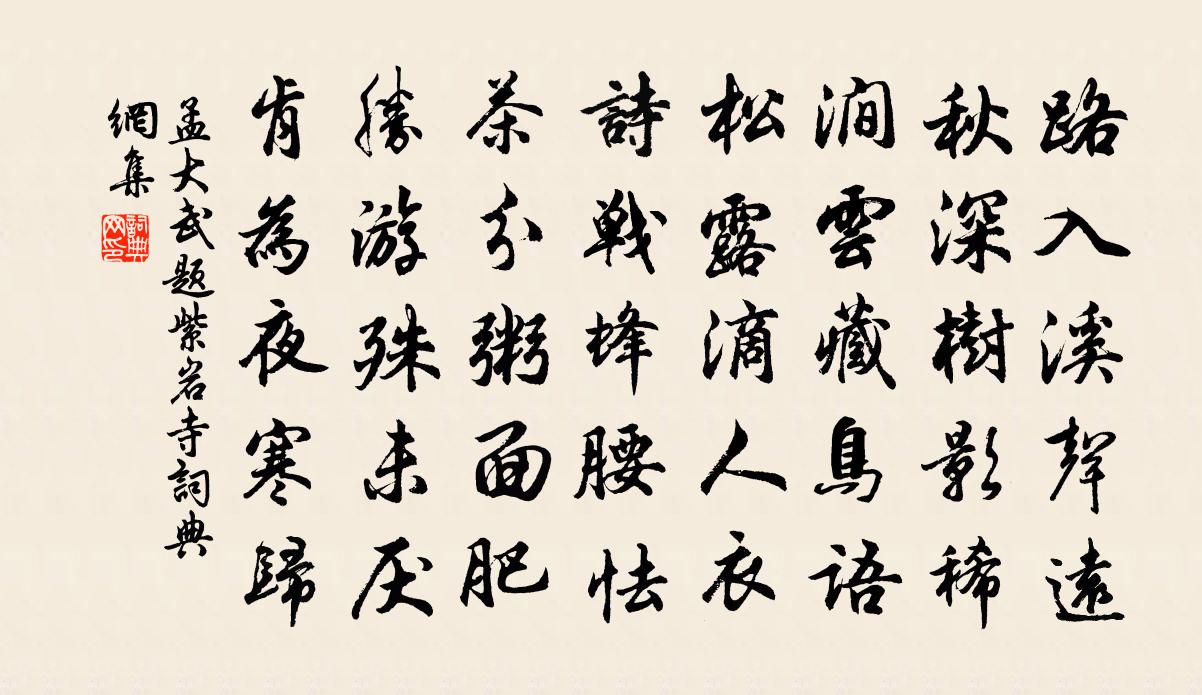 路入溪聲遠
秋深樹影稀
澗雲藏鳥語
松露滴人衣
詩戰蜂腰怯
茶分粥面肥
勝游殊未厌
肯為夜寒歸
孟大武題紫岩寺詞典
網集
詞典
网印